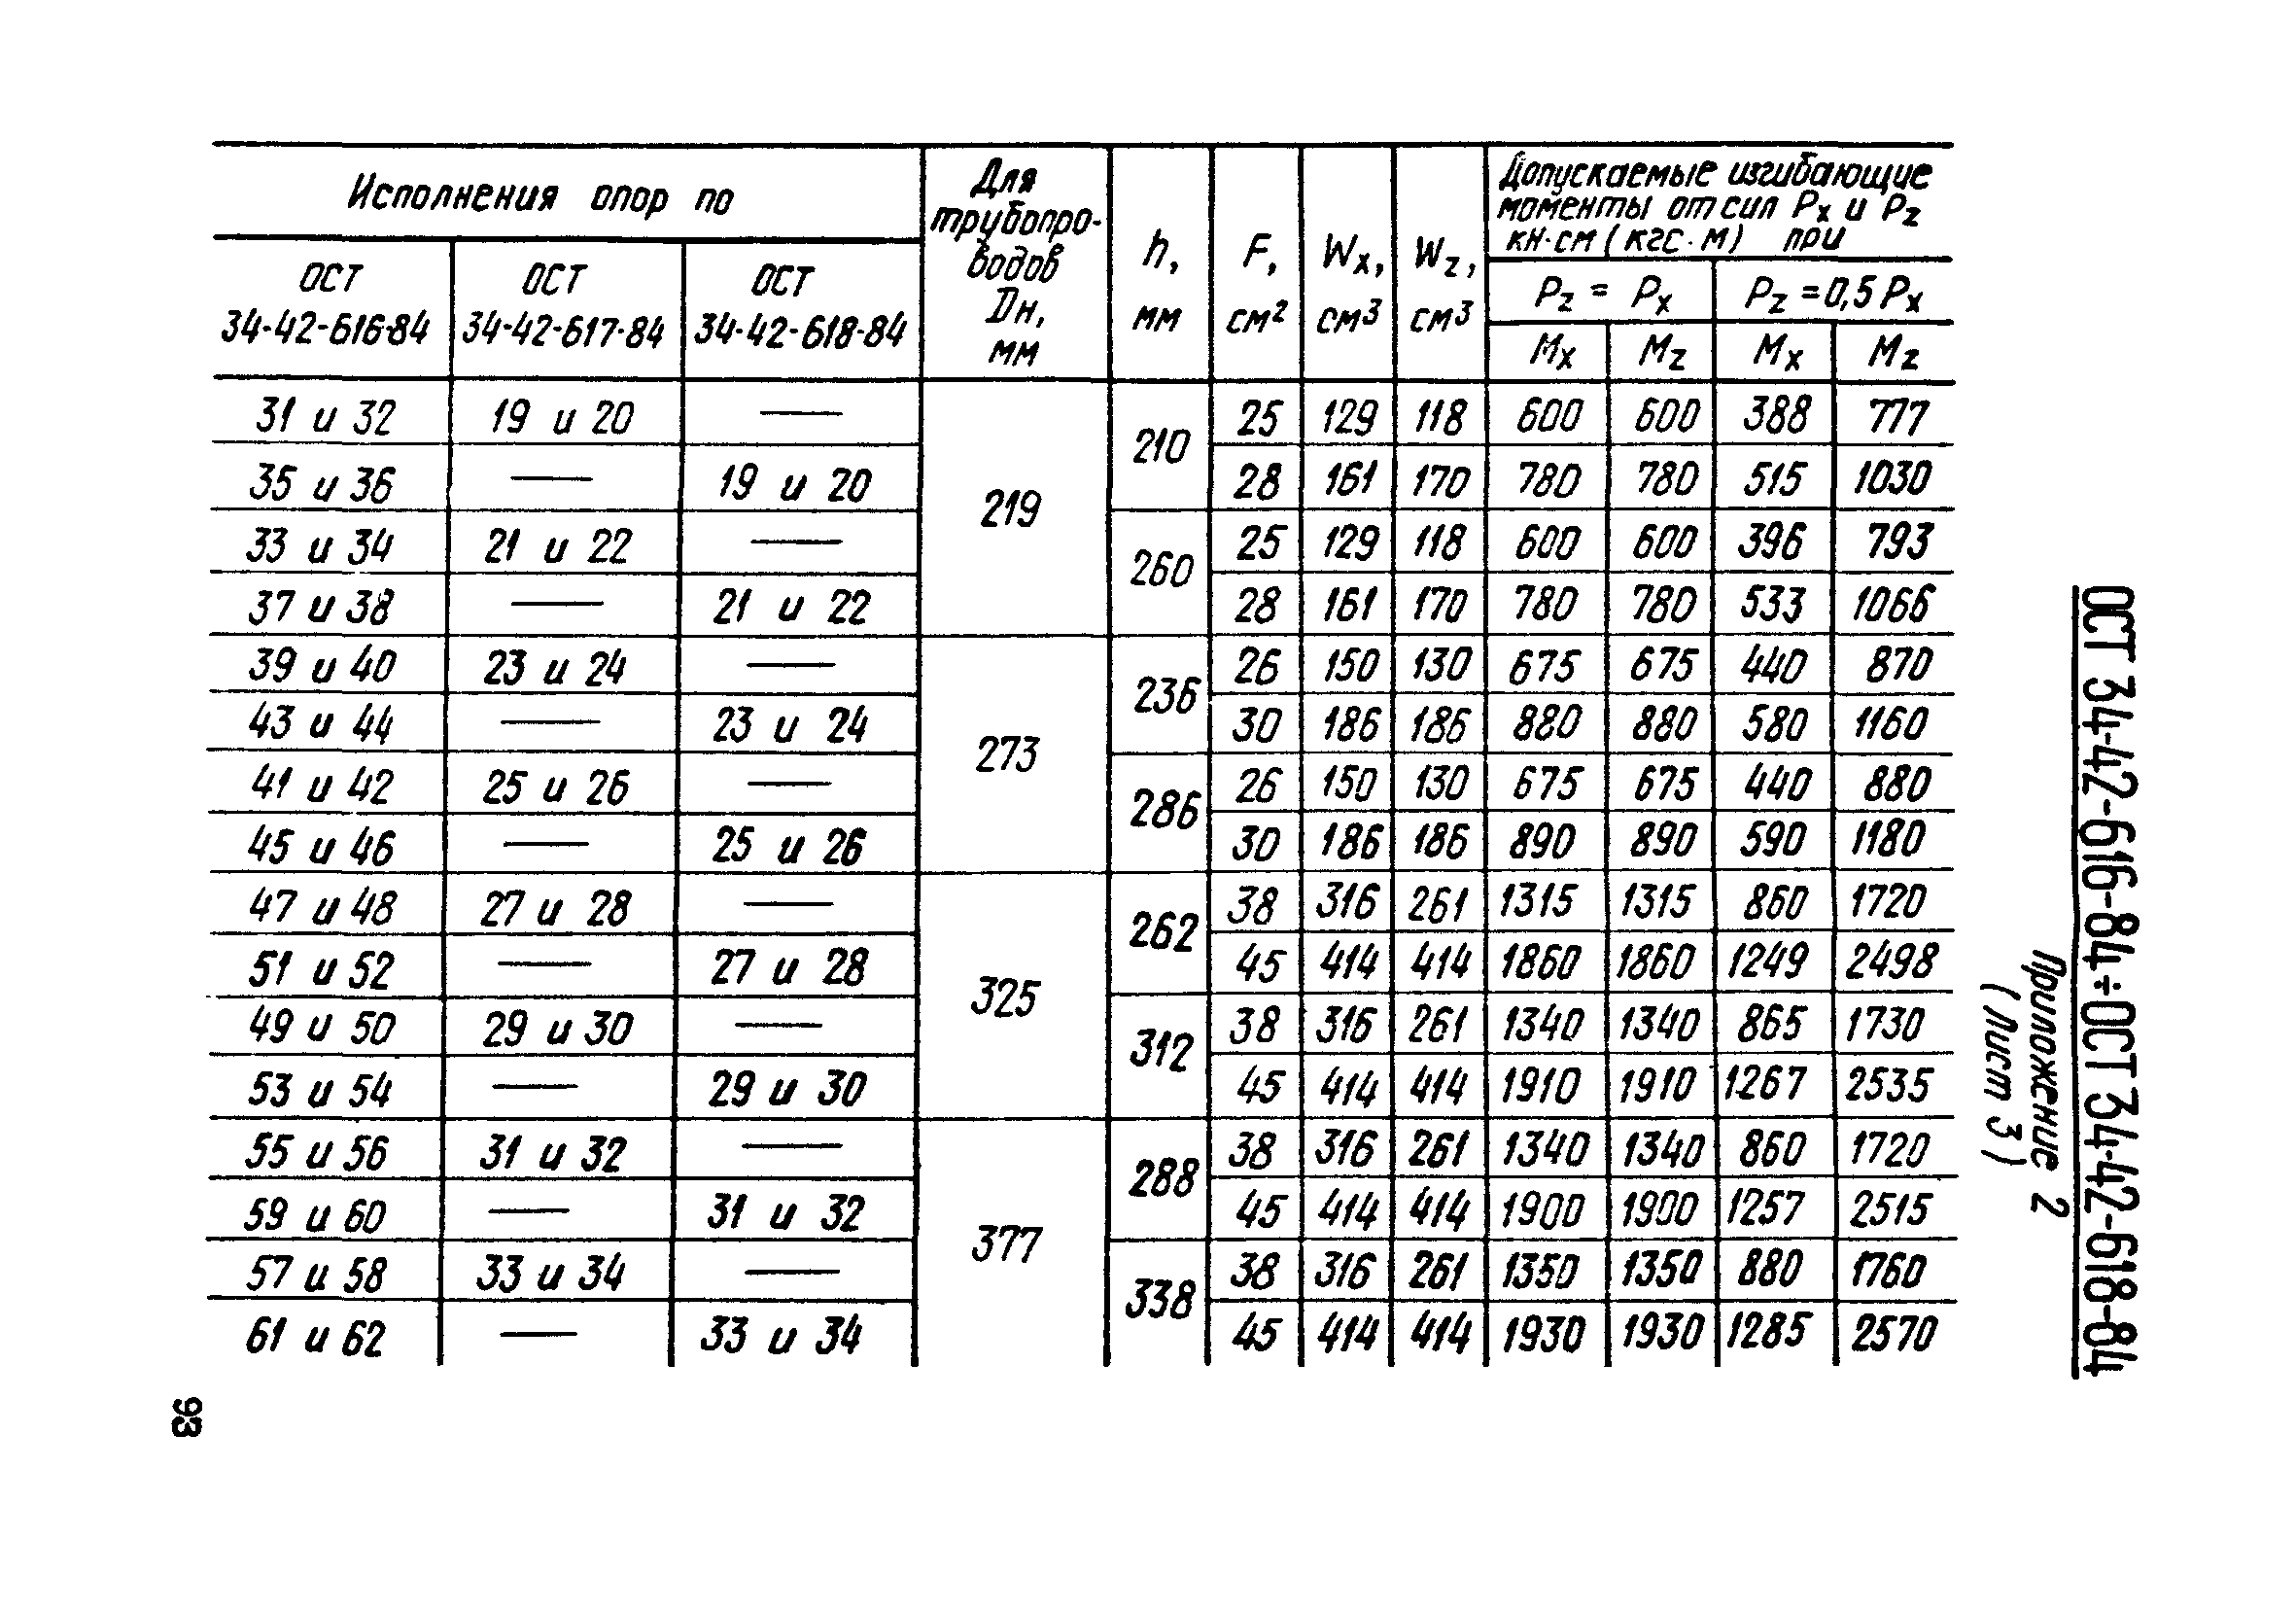 ОСТ 34-42-616-84÷ОСТ 34-42-618-84
Приложение 2
(Лист 3)
Исполнения опор по
Для
трубопро-
водов
Dн,
мм
h,
мм
F,
см²
Wx,
см³
Wz,
см³
Допускаемые изгибающие
моменты от сил Px и Pz
кН·см (кгс·м) при
ОСТ
34-42-616-84
ОСТ
34-42-617-84
ОСТ
34-42-618-84
Pz = Px
Pz = 0,5 Px
Mx Mz Mx Mz
31 и 32 19 и 20 — 219 210 25 129 118 600 600 388 777
35 и 36 — 19 и 20 28 161 170 780 780 515 1030
33 и 34 21 и 22 — 260 25 129 118 600 600 396 793
37 и 38 — 21 и 22 28 161 170 780 780 533 1066
39 и 40 23 и 24 — 273 236 26 150 130 675 675 440 870
43 и 44 — 23 и 24 30 186 186 880 880 580 1160
41 и 42 25 и 26 — 286 26 150 130 675 675 440 880
45 и 46 — 25 и 26 30 186 186 890 890 590 1180
47 и 48 27 и 28 — 325 262 38 316 261 1315 1315 860 1720
51 и 52 — 27 и 28 45 414 414 1860 1860 1249 2498
49 и 50 29 и 30 — 312 38 316 261 1340 1340 865 1730
53 и 54 — 29 и 30 45 414 414 1910 1910 1267 2535
55 и 56 31 и 32 — 377 288 38 316 261 1340 1340 860 1720
59 и 60 — 31 и 32 45 414 414 1900 1900 1257 2515
57 и 58 33 и 34 — 338 38 316 261 1350 1350 880 1760
61 и 62 — 33 и 34 45 414 414 1930 1930 1285 2570
93